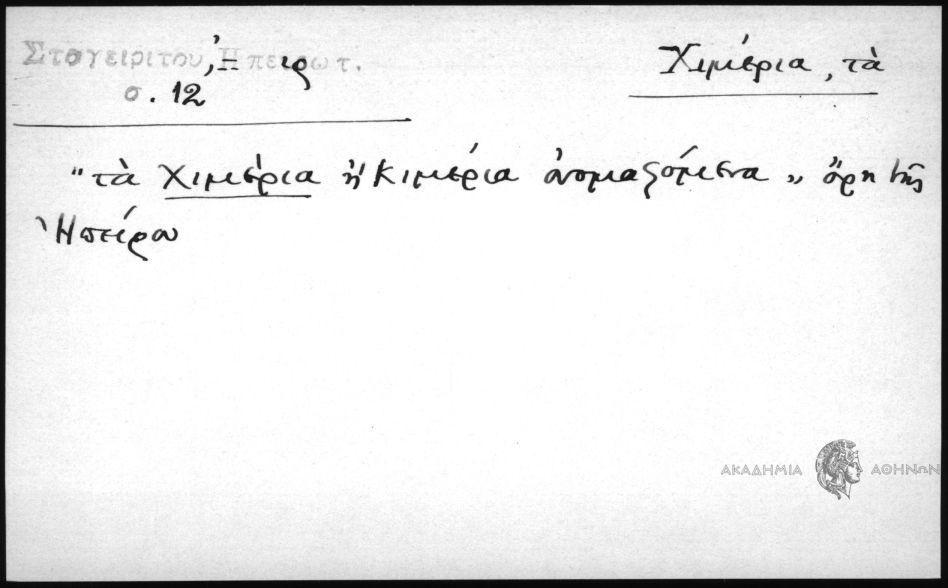 Σταγειριτου, Ηπειρωτ.
Χιμέρια, τὰ
σ. 12
"τὰ Χιμέρια ἢ Κιμέρια ὀνομαζόμενα" ὄρη τῆς
Ἠπείρου
ΑΚΑΔΗΜΙΑ ΑΘΗΝΩΝ